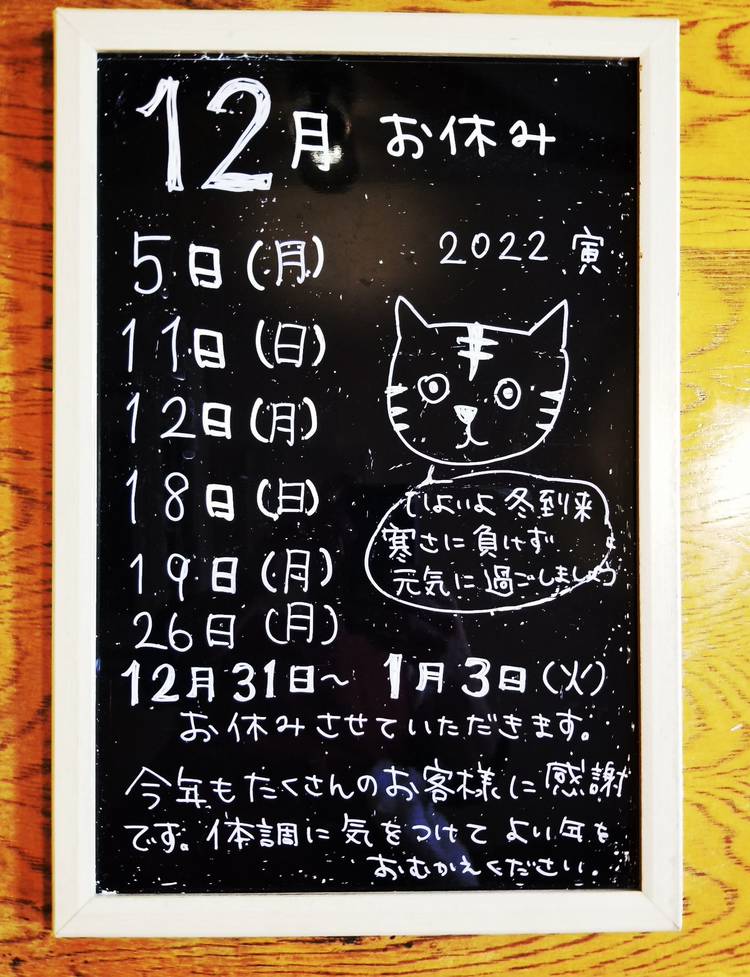 12月 お休み
2022 寅
5日(月)
11日(日)
12日(月)
18日(日)
19日(月)
26日(月)
いよいよ冬到来
寒さに負けず
元気に過ごしましょう
12月31日〜 1月3日(火)
お休みさせていただきます。
今年もたくさんのお客様に感謝
です。体調に気をつけて よい年を
おむかえください。